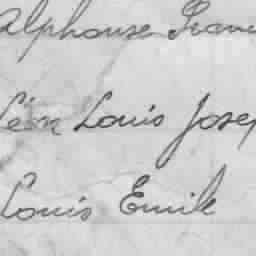 Alphonse Franc
Léon Louis Josep
Louis Emile